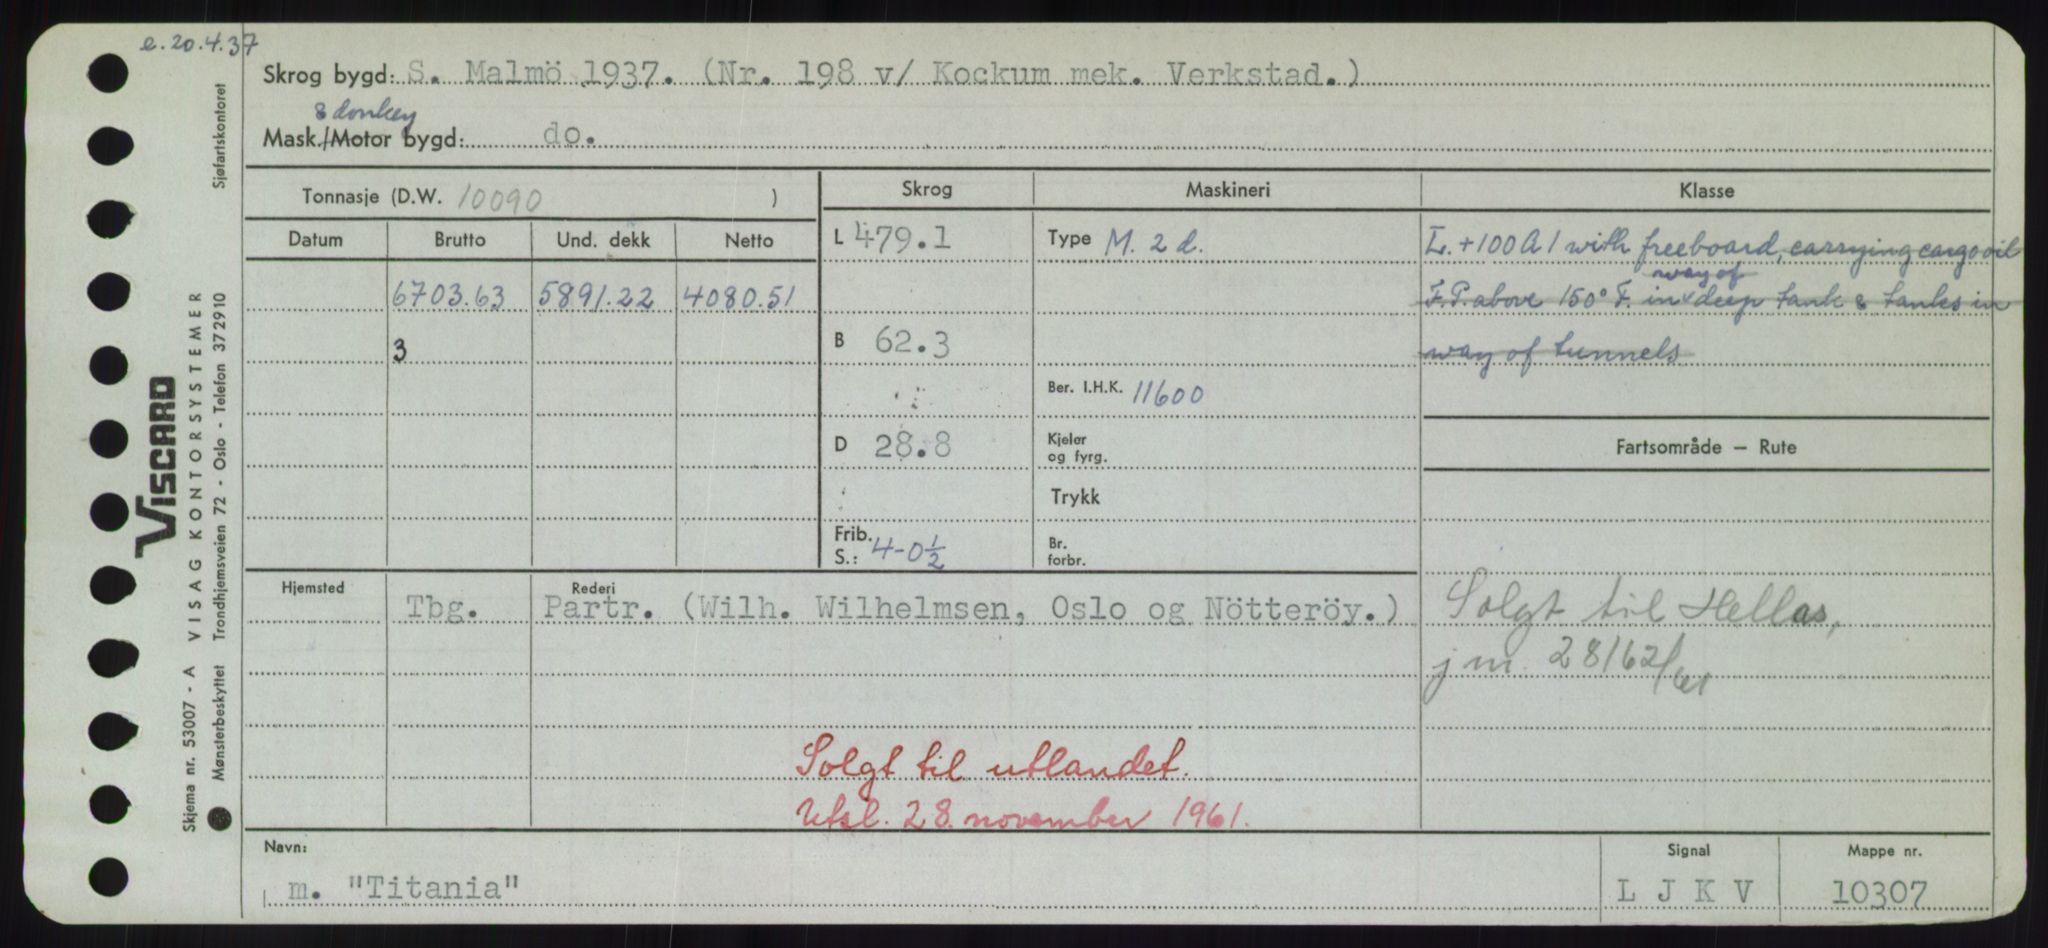 e. 20.4.37
Skrog bygd: S. Malmö 1937. (Nr. 198 v/ Kockum mek. Verkstad.)
& donkey
Mask./Motor bygd: do.
Tonnasje (D.W. 10090 )
Skrog
Maskineri
Klasse
Datum
Brutto
Und. dekk
Netto
L 479.1
Type M. 2 d.
L. +100A1 with freeboard, carrying cargo oil
way of
6703.63 5891.22 4080.51
F.P. above 150° F. in deep tank & tanks in
3
B 62.3
way of tunnels
Ber. I.H.K. 11600
D 28.8
Kjeler
og fyrg.
Fartsområde — Rute
Trykk
Frib.
S.: 4-0½
Br.
forbr.
Hjemsted
Tbg.
Rederi
Partr. (Wilh. Wilhelmsen, Oslo og Nötteröy.)
Solgt til Hellas,
j m. 28162/61
Solgt til utlandet.
Utsl. 28. november 1961.
Navn:
m. "Titania"
Signal
L J K V
Mappe nr.
10307
VISCARD
VISAG KONTORSYSTEMER
Skjema nr. 53007 - A
Mønsterbeskyttet Trondhjemsveien 72 - Oslo - Telefon 372910
Sjøfartskontoret